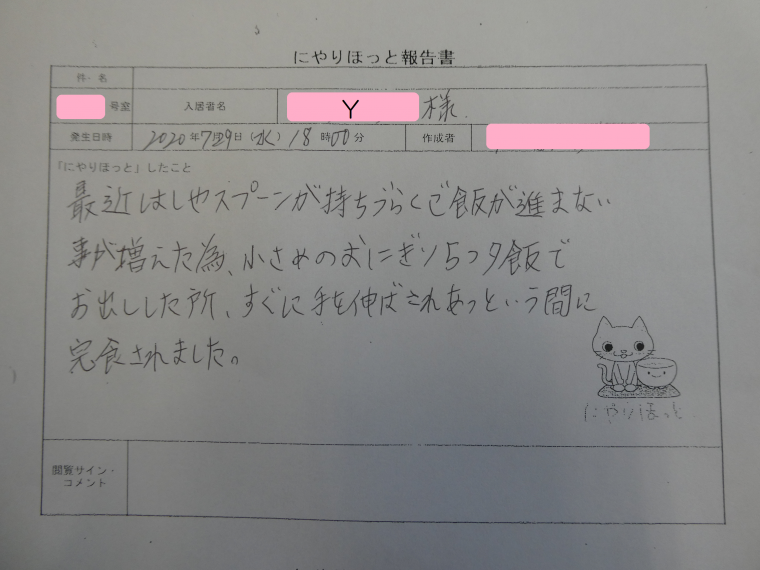 にやりほっと報告書
件 名
号室 入居者名 Y 様
発生日時 2020年7月29日(水) 18時00分 作成者
「にやりほっと」したこと
最近はしやスプーンが持ちづらくご飯が進まない
事が増えた為、小さめのおにぎり5つ夕飯で
お出しした所、すぐに手を伸ばされあっという間に
完食されました。
にやりほっと
閲覧サイン・
コメント